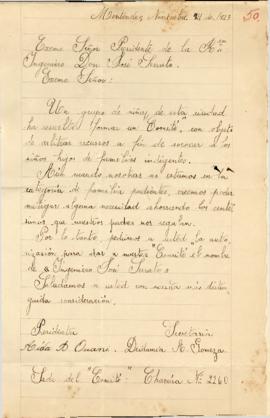 Montevideo, Noviembre 21 de 1923
50
Excmo Señor Presidente de la
Ingeniero Don José Serrato.
Excmo Señor:
Un grupo de niñas de esta ciudad
ha resuelto formar un "Comité", con objeto
de arbitrar recursos a fin de socorrer a los
niños hijos de familias indigentes.
Aún cuando nosotras no estamos en la
categoría de familia pudientes, creemos poder
mitigar alguna necesidad ahorrando los cente-
simos que nuestros padres nos regalan.
Por lo tanto, pedimos a usted la auto-
rización para dar a nuestro "Comité" el nombre
de "Ingeniero José Serrato"
Saludamos a usted con nuestra más distin-
guida consideración.
Presidenta Secretaria
Aida A.
Sede del "Comité": Nº 2260